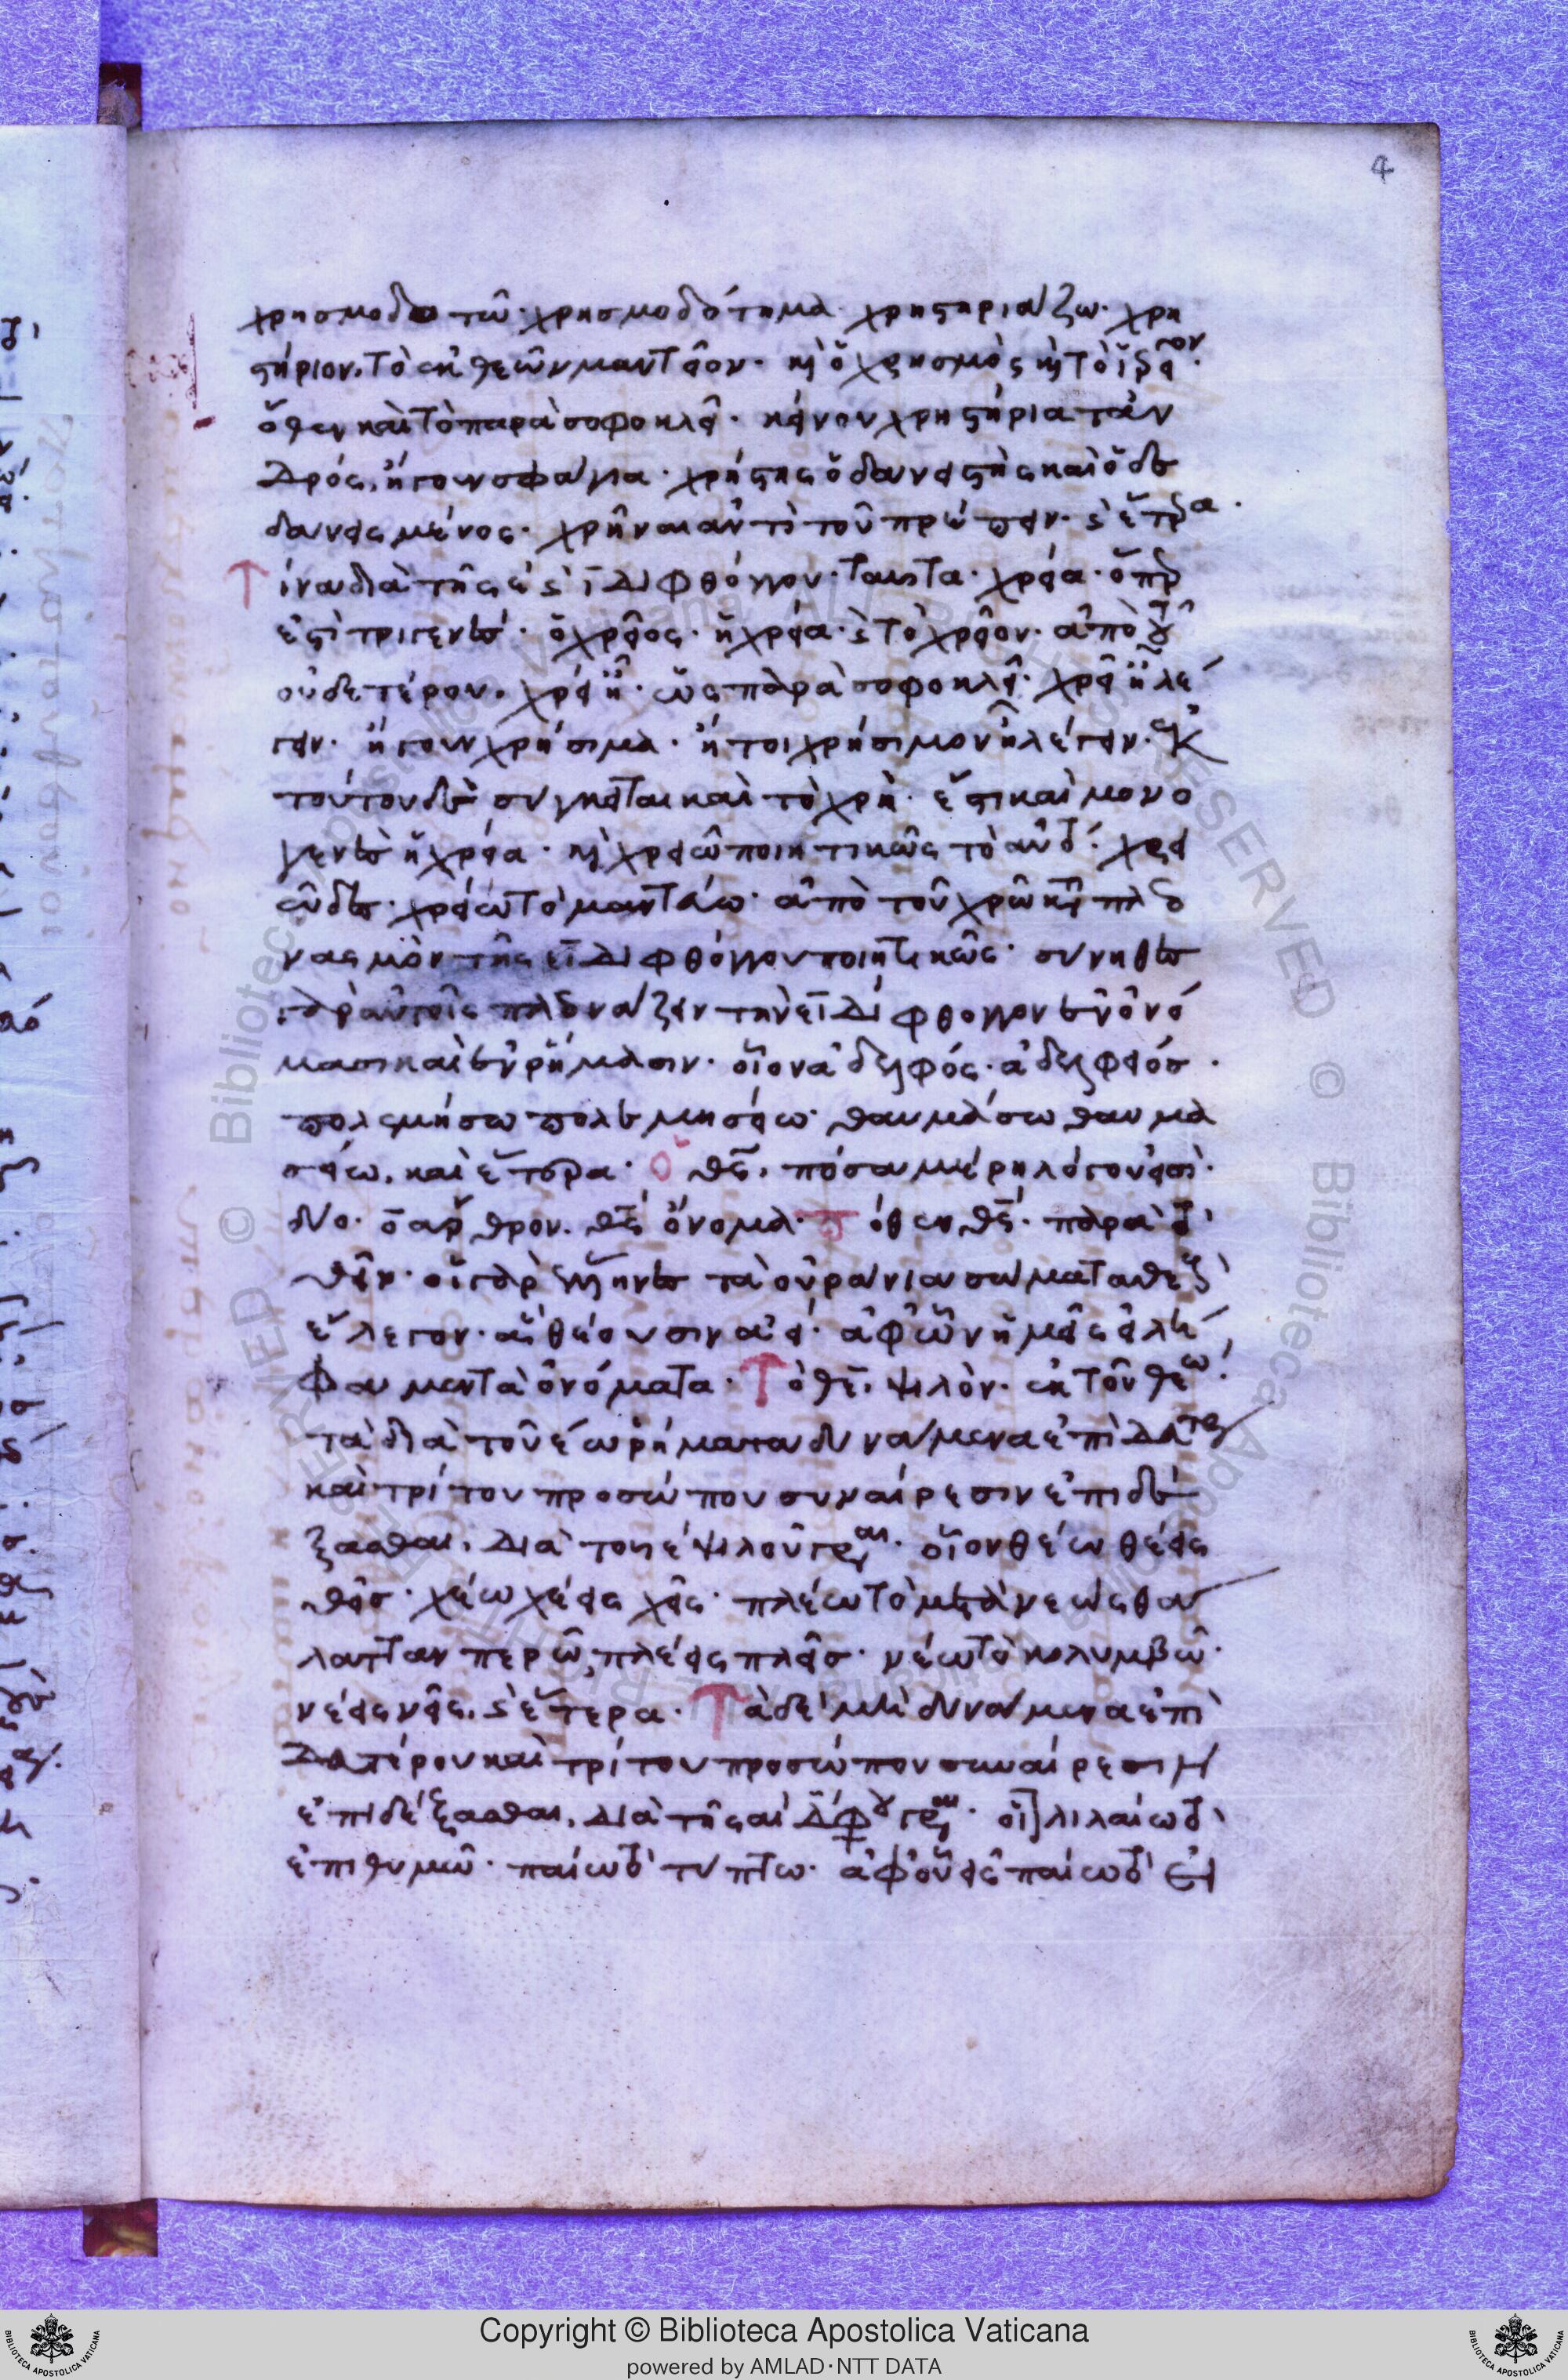 4
χρησμοδοτῶ· χρησμοδότημα· χρηστηριάζω· χρη
στήριον, τὸ ἐκ θεῶν μαντεῖον· καὶ ὁ χρησμὸς καὶ τὸ ἱερεῖον·
ὅθεν καὶ τὸ παρὰ σοφοκλεῖ· κεῖνου χρηστήρια τἀν
δρός, ἤγουν σφάγια· χρήστης ὁ δανειστὴς καὶ ὁ δε
δανεισμένος· χρῆναι ἀντὶ τοῦ πρέπειν· καὶ ἕτερα·
ἵνα διὰ τῆς ε καὶ ῑ διφθόγγου· ταῦτα· χρεία· ὅπερ
ἐστὶ τριγενές· ὁ χρεῖος· ἡ χρεία· καὶ τὸ χρεῖον· ἀπὸ τοῦ
οὐδετέρου· χρείη· ὡς παρὰ σοφοκλεῖ· χρεῖ ἢ λέ
γειν· ἤγουν χρήσιμα· ἤτοι χρήσιμον ἢ λέγειν· ἐκ
τούτου δὲ συγκεῖται καὶ τὸ χρή· ἔστι καὶ μονο
γενὲς ἡ χρεία· καὶ χρεὼ ποιητικῶς τὸ αὐτό· χρει
ώδες· χρείω τὸ μαντεύω· ἀπὸ τοῦ χρῶ κατὰ πλεο
νασμὸν τῆς ει διφθόγγου ποιητικῶς· σύνηθες
παρ' αὐτοῖς πλεονάζειν τὴν ει δίφθογγον ἐν ὀνό
μασι καὶ ἐν ῥήμασιν· οἷον ἀδελφός· ἀδελφειός·
πολεμήσω πολεμησείω· θαυμάσω θαυμα
σείω, καὶ ἕτερα· ὁ θς̄, πόσα μέρη λόγου εἰσί·
δύο· ὁ ἄρθρον. θς̄ ὄνομα· πόθεν θς̄· παρὰ τὸ
θεῖν· οἱ γὰρ ἕλληνες τὰ οὐράνια σώματα θεοὺς
ἔλεγον· ἃ θέουσιν ἀεί· ἀφ' ὧν ἡμεῖς εἰλή
φαμεν τὰ ὀνόματα· τὸ θε, ψιλόν· ἐκ τοῦ θέω·
τὰ διὰ τοῦ έω ῥήματα δυνάμενα ἐπὶ δευτέρου
καὶ τρίτου προσώπου συναίρεσιν ἐπιδέ
ξασθαι, διὰ τοῦ ε ψιλοῦ γράφεται· οἷον θέω θέεις
θεῖς· χέω χέεις χεῖς· πλέω τὸ μετὰ νεὼς θά
λατταν περῶ, πλέεις πλεῖς· νέω τὸ κολυμβῶ·
νέεις νεῖς, καὶ ἕτερα· τὰ δὲ μὴ δυνάμενα ἐπὶ
δευτέρου καὶ τρίτου προσώπου συναίρεσιν
ἐπιδέξασθαι, διὰ τῆς αι διφθόγγου γράφεται· οἷον λιλαίω τὸ
ἐπιθυμῶ· παίω τὸ τύπτω· ἀφ' οὗ εἰς παίω τὸ
Copyright © Biblioteca Apostolica Vaticana
powered by AMLAD·NTT DATA